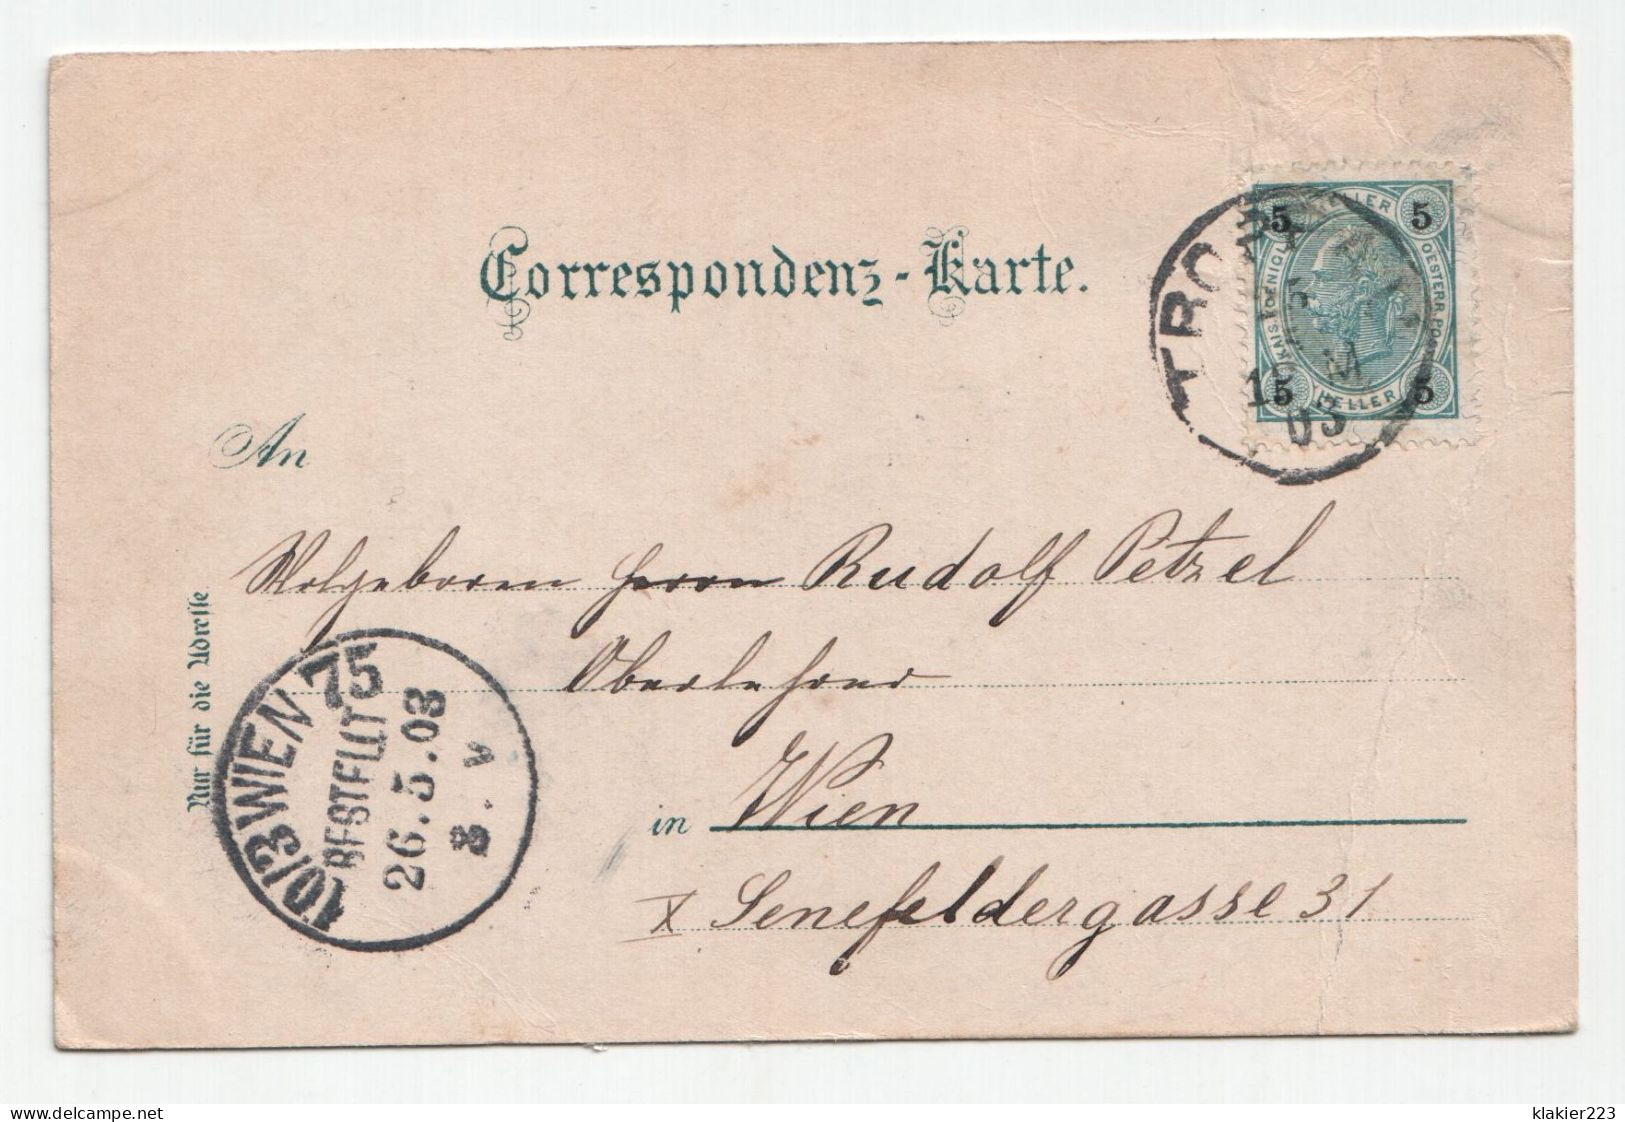 Correspondenz-Karte.
HELLER
5 5
KAIS. KOENIGL.
OESTERR. POST
5 5
HELLER
TROPP
15
M
03
An
Wolgeboren Herrn Rudolf Petzel
Oberlehrer
in Wien
X Senefeldergasse 31
Nur für die Adresse
10/3 WIEN 75
BESTELLT
26.5.03
8. V
delcampe.net
klakier223